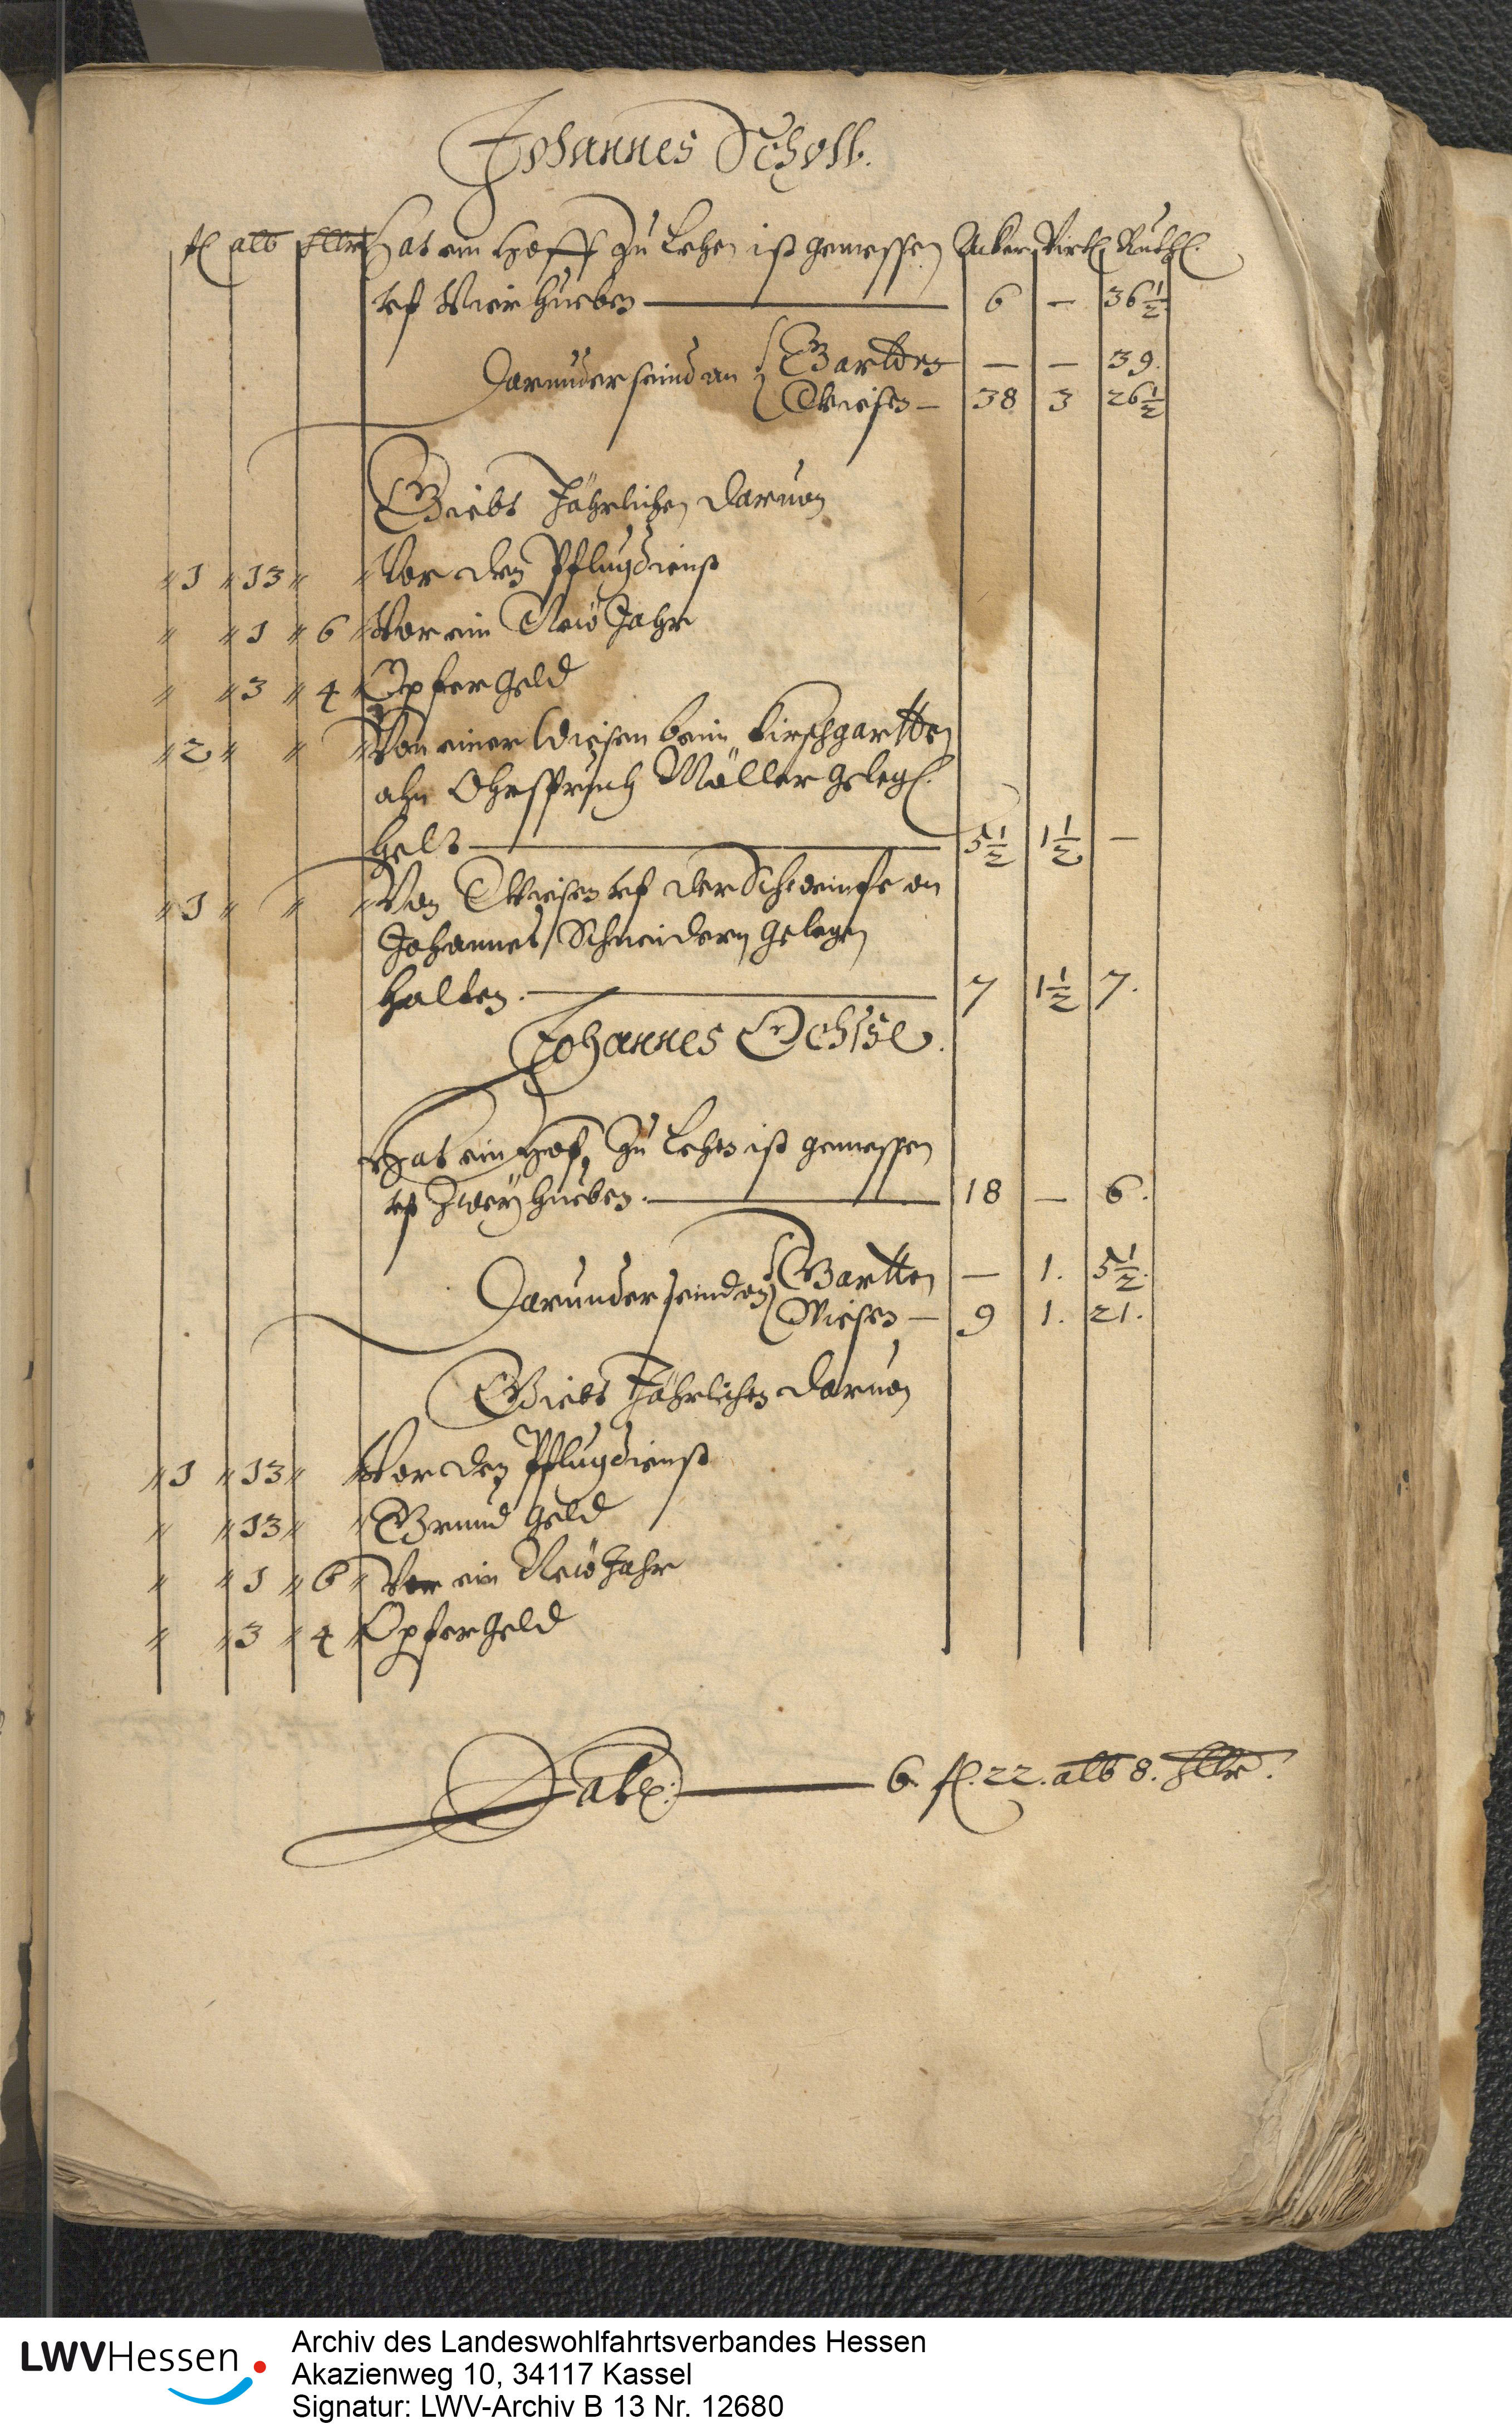 Johannes Scholl.
fl alb hllr Hat ein Hoff zu Lehen ist gemessen Acker Virtl Ruth.
vf Vier Hueben — 6 — 36 1/2
Darunder seind an Gartten — — 39.
Wiesen — 38 3 26 1/2
Giebt Jährlichen daruon
1 13 Vor den Pflugdienst
1 6 Vor ein New Jahr
3 4 Opfergeld
2 Von einer Wiesen beim Kirschgartten
ahn Möller geleg.
helt — 5 1/2 1 1/2 —
1 Von Wiesen vf der an
Johannes Schneidern gelegen
halten. — 7 1 1/2 7.
Johannes Ochße.
Hat ein Hof, zu Lehen ist gemessen
vf zwey Hueben. — 18 — 6.
Darunder seind an Gartten — 1. 5 1/2.
Wiesen — 9 1. 21.
Giebt Jährlichen daruon
1 13 Vor den Pflugdienst
13 Grund geld
1 6 Vor ein New Jahr
3 4 Opfergeld
Lat. — 6. fl. 22. alb 8. hllr.
LWVHessen
Archiv des Landeswohlfahrtsverbandes Hessen
Akazienweg 10, 34117 Kassel
Signatur: LWV-Archiv B 13 Nr. 12680